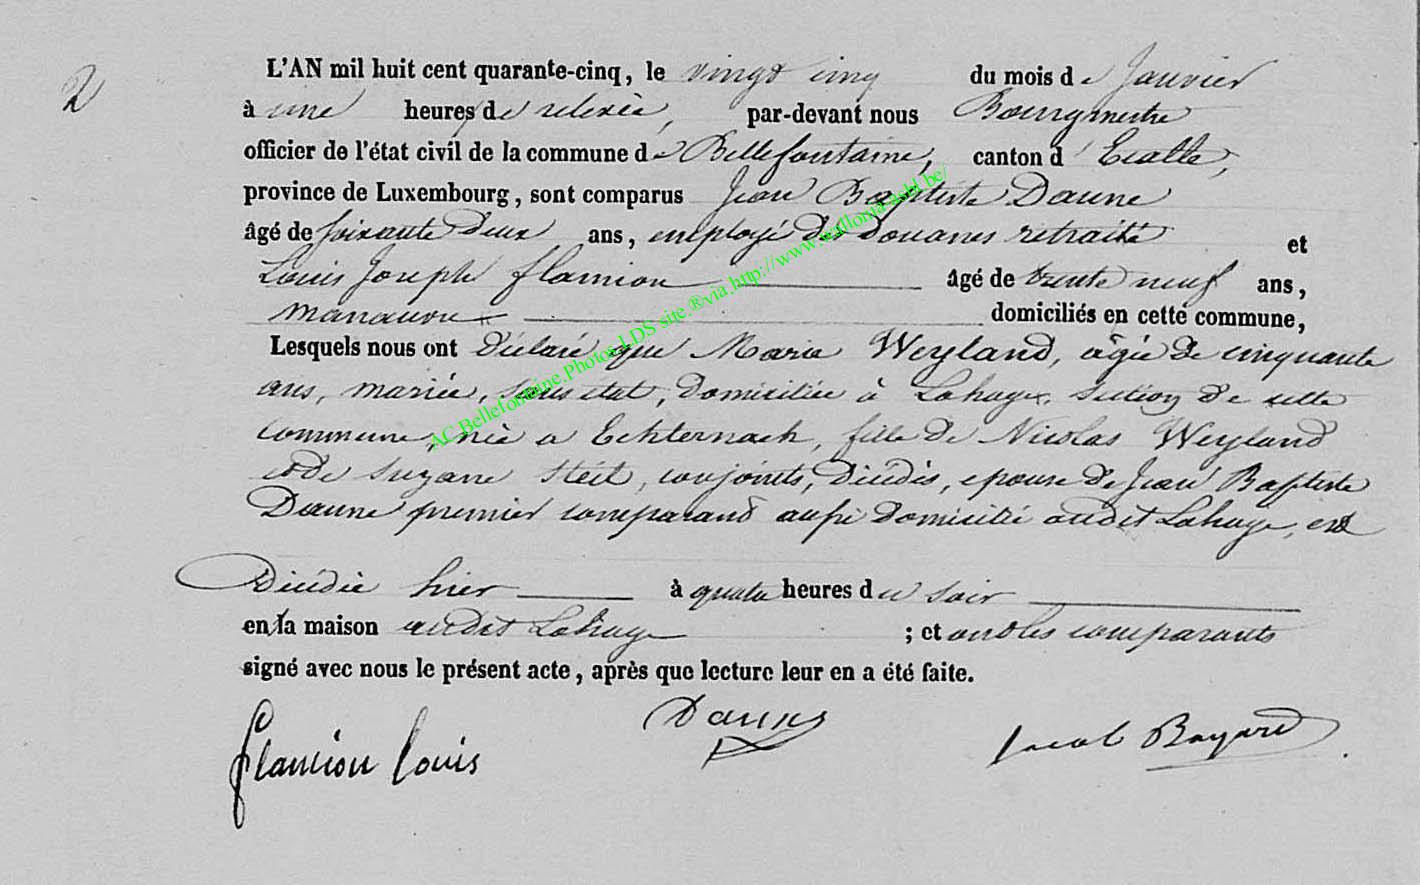 2
L'AN mil huit cent quarante-cinq, le vingt cinq du mois de Janvier
à une heures de relevée, par-devant nous Bourgmestre
officier de l'état civil de la commune de Bellefontaine, canton d'Etalle,
province de Luxembourg, sont comparus Jean Baptiste Daune
âgé de soixante deux ans, employé de Douanes retraité et
Louis Joseph flamion âgé de trente neuf ans,
manœuvre domiciliés en cette commune,
Lesquels nous ont Déclaré que Marie Weyland, âgée de cinquante
ans, mariée, sans etat, Domiciliée à Lahage, Section De cette
commune, née a Echternach, fille de Nicolas Weyland
et de Suzane Steit, conjoints, Décédés, epouse de Jean Baptiste
Daune premier comparant aussi Domicilié audit Lahage, est
Décédée hier à quatre heures du soir
en la maison audit Lahage ; et ont les comparants
signé avec nous le présent acte, après que lecture leur en a été faite.
flamion louis Daune Jacob Bayard
AC.Bellefontaine.Photos.LDS site.®via.http://www.wallonia-asbl.be/